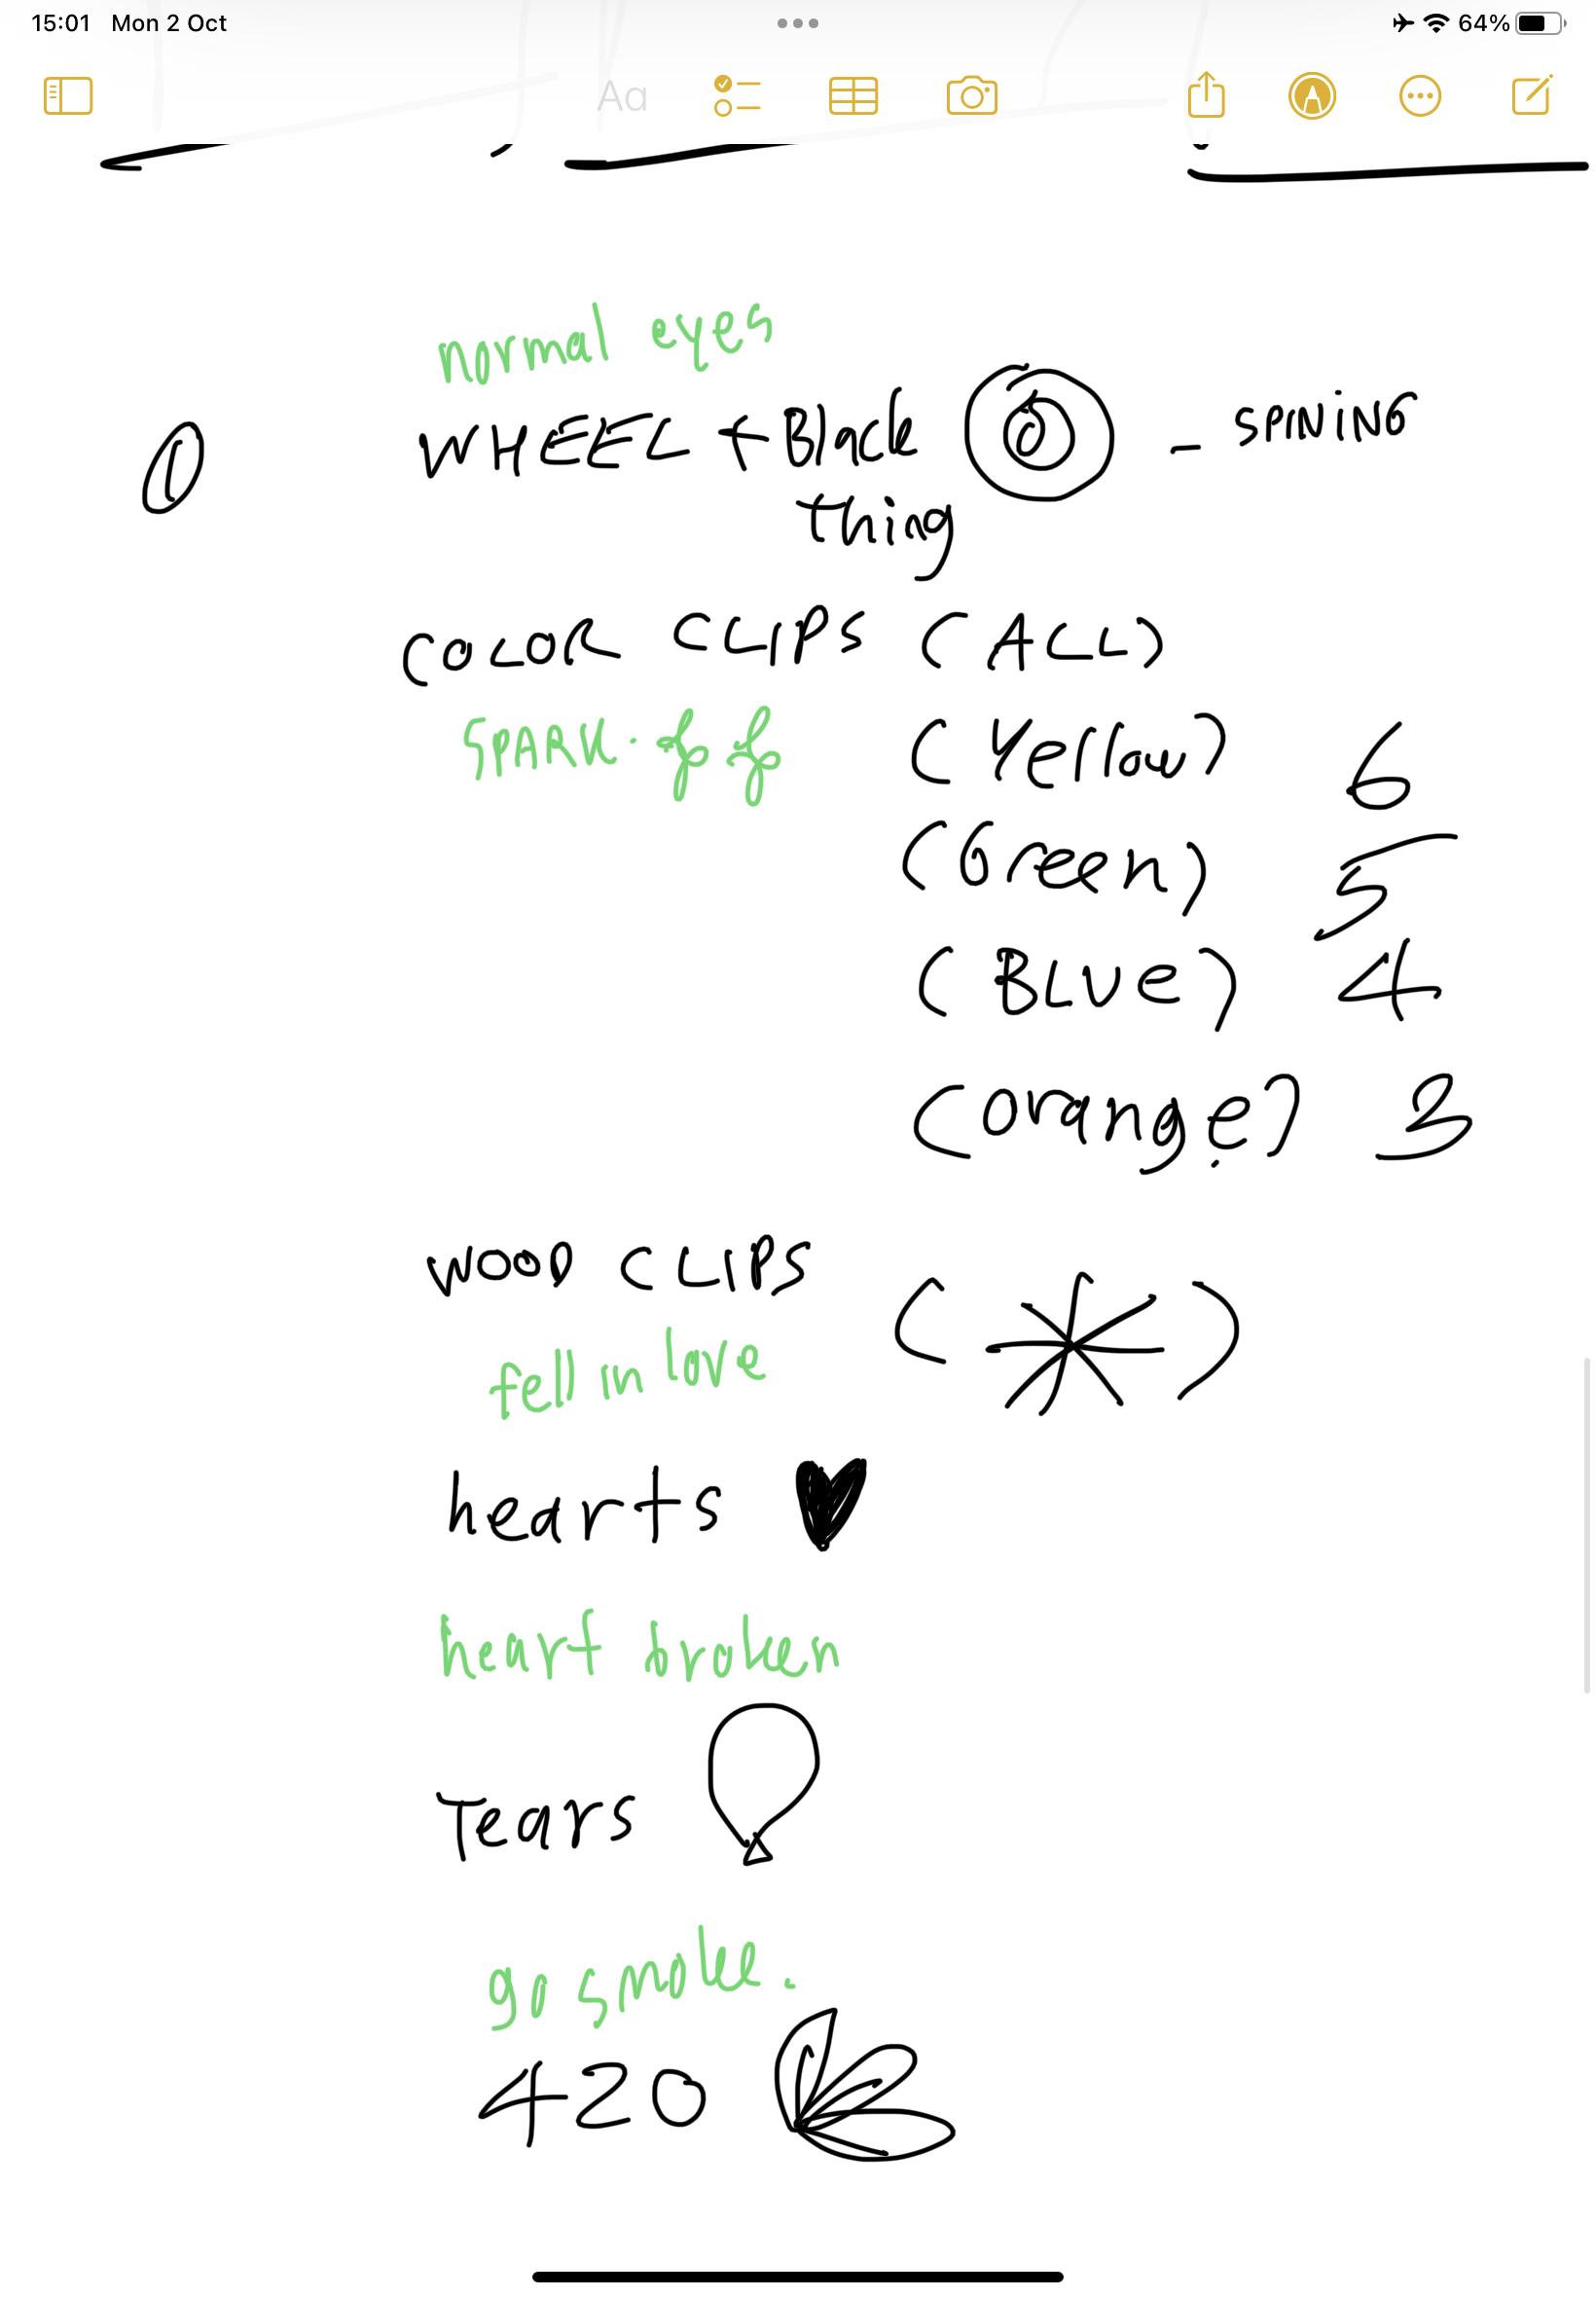 15:01 Mon 2 Oct 64%
Aa
normal eyes
WHEEL + Black - SPINING
thing
COLOR CLIPS (ALL)
SPARK. (Yellow) 6
(Green) 5
(BLUe) 4
(Orange) 3
WOOD CLIPS
fell in love
hearts
heart broken
Tears
go smoke.
420